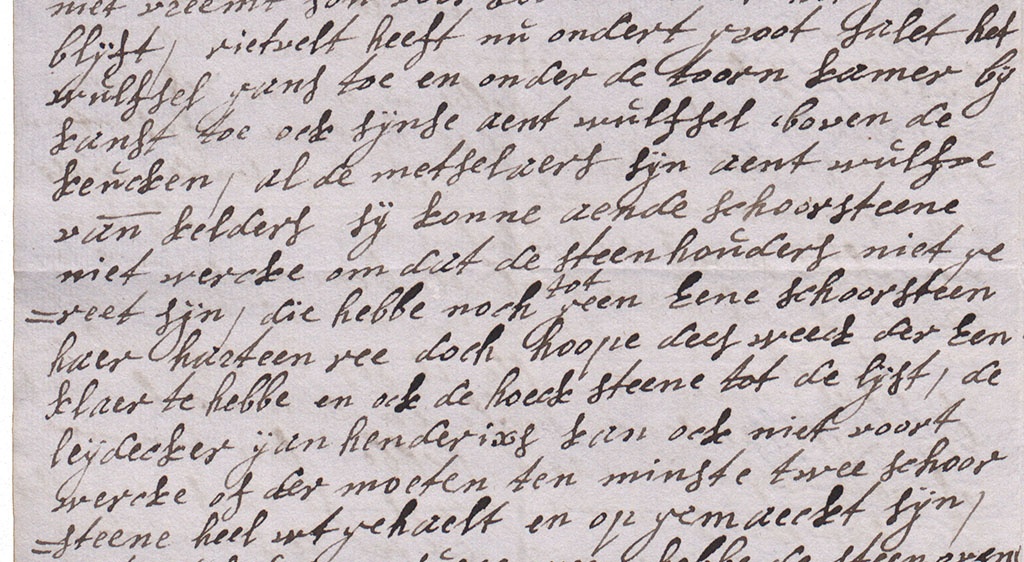 niet vreemt
blyft, rietvelt heeft nu ondert groot salet het
wulfsel gans toe en onder de toorn kamer by
kanst toe ock synse aent wulfsel boven de
keucken, al de metselaers syn aent wulfse
van kelders sy konne aende schoorsteene
niet wercke om dat de steenhouders niet ge
=reet syn, die hebbe noch tot geen eene schoorsteen
haer harteen ree doch hoope dees weeck der een
klaer te hebbe en ock de hoeck steene tot de lyst, de
leydecker yan henderixs kan ock niet voort
wercke of der moeten ten minste twee schoor
=steene heel wtgehaelt en op gemaeckt syn,
hebbe de steen